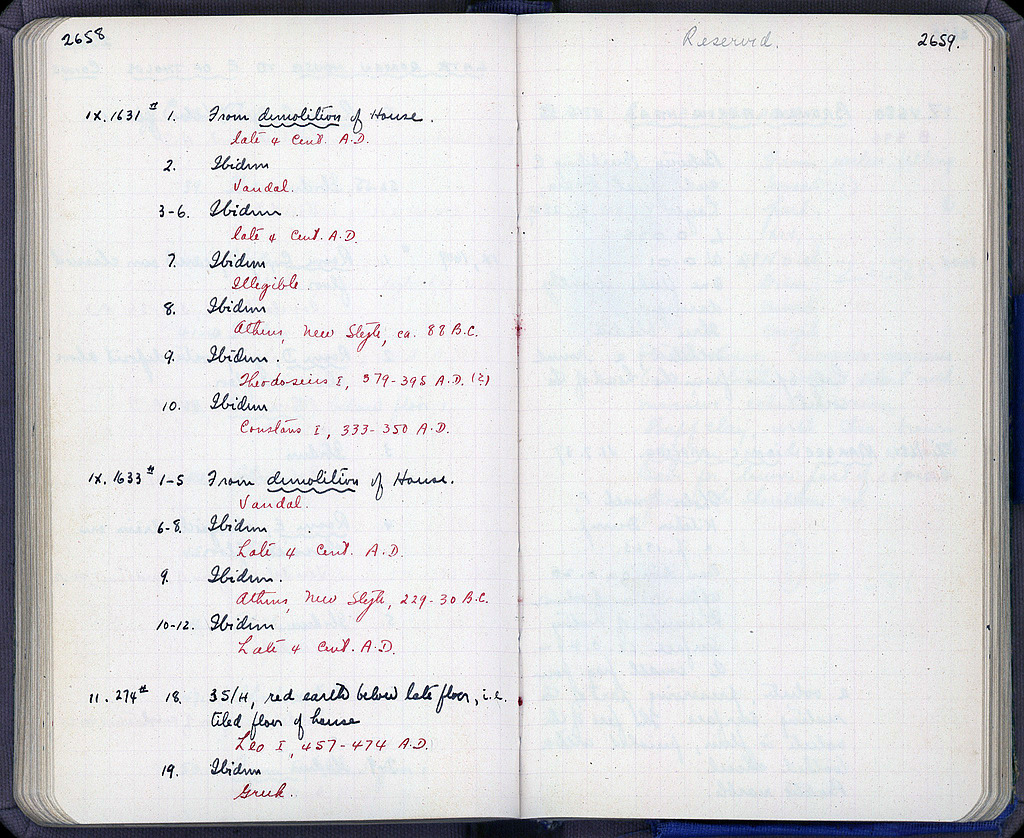 2658
IX. 1631 # 1. From demolition of House.
late 4 Cent. A.D.
2. Ibidum
Vandal.
3-6. Ibidum
late 4 Cent. A.D.
7. Ibidum
Illegible.
8. Ibidum
Athens, New Style, ca. 88 B.C.
9. Ibidum.
Theodosius I, 379-395 A.D. (?)
10. Ibidum
Constans I, 333-350 A.D.
IX. 1633 # 1-5 From demolition of House.
Vandal.
6-8. Ibidum.
Late 4 Cent. A.D.
9. Ibidum.
Athens, New Style, 229-30 B.C.
10-12. Ibidum
Late 4 Cent. A.D.
11. 274 # 18. 35/H, red earth below late floor, i.e.
tiled floor of house
Leo I, 457-474 A.D.
19. Ibidum
Greek.
Reserved.
2659.